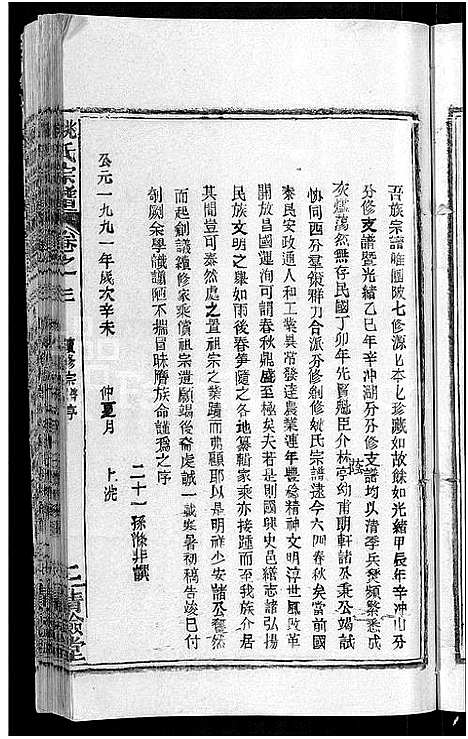 吾族宗譜唯團陂七修源公本公珍藏如故餘如光緒甲辰年辛冲山分
分修支譜暨光緒乙巳年辛冲湖分分修支譜均以清季兵燹頻繁悉成
灰燼蕩然無存民國丁卯年先賢魁臣介林亭幼甫朝軒諸公秉公竭誠
協同西分羣策群力合派分修創修姚氏宗譜逮今六四春秋矣當前國
泰民安政通人和工業異常發達農業連年豐稔精神文明淳世風改革
開放昌國運洵可謂春秋鼎盛至極矣夫若是則國興史邑繕志諸弘揚
民族文明之舉如雨後春筍隨之各地纂輯家乘亦接踵而至我族介居
其間豈可泰然處之置祖宗之業蹟而弗顧耶以是明祥少安諸公奮然
而起創議續修家乘償祖宗遺願竭後裔處誠一載寒暑初稿告竣已付
剞劂余學識譾陋不揣冒昧膺族命謹爲之序
二十一孫滌非謹
公元一九九一年歲次辛未 仲夏月 上浣
姚氏宗譜 卷之三 續修宗譜序